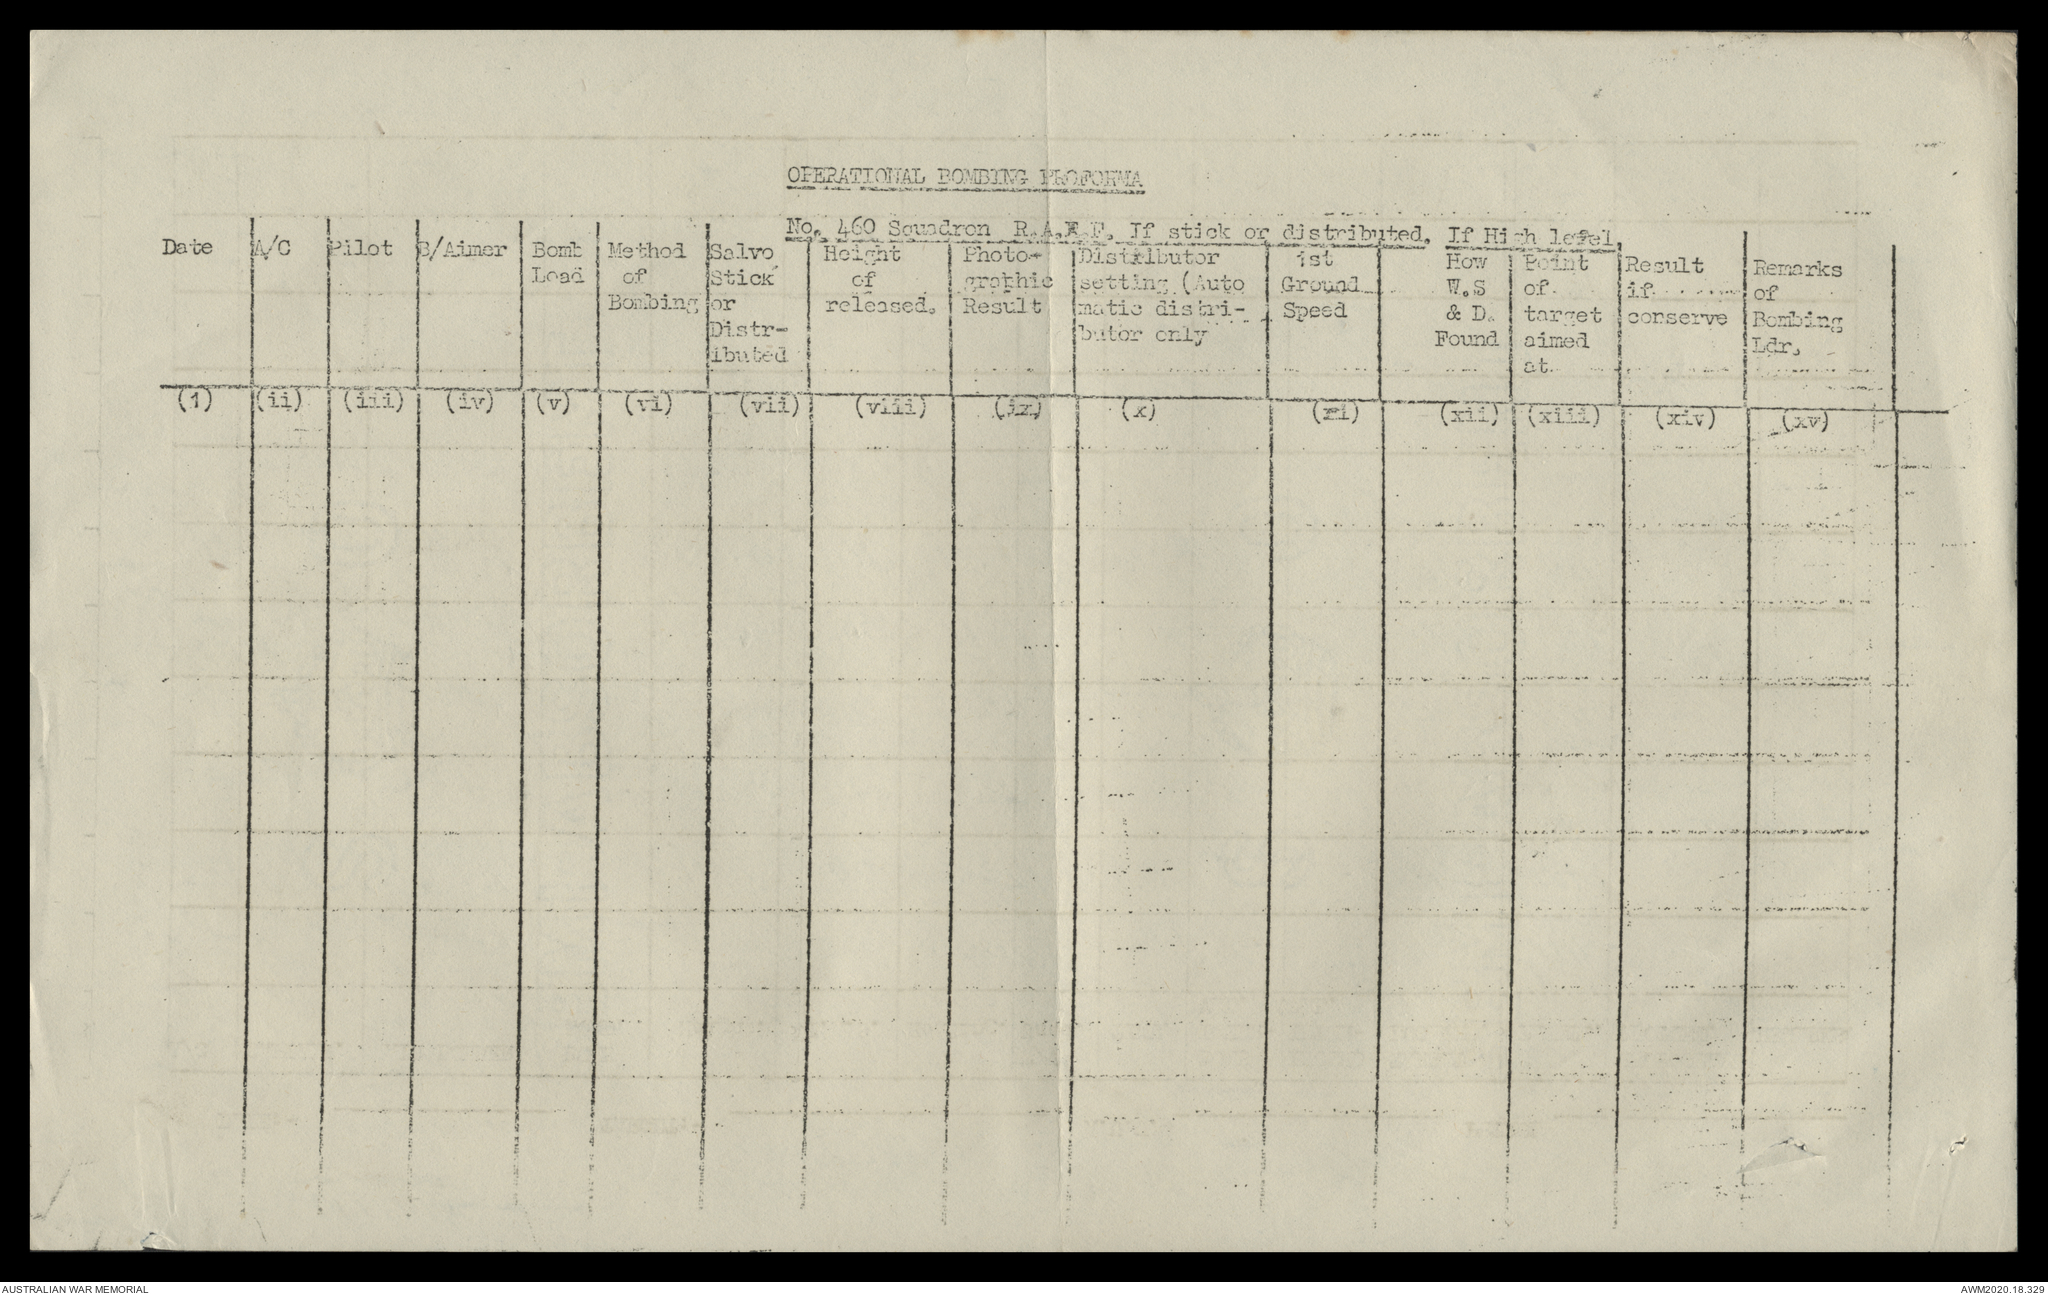 OPERATIONAL BOMBING PROFORMA
No. 460 Squadron R.A.A.F. If stick or distributed. If High level.
Date
A/C
Pilot
B/Aimer
Bomb
Load
Method
of
Bombing
Salvo
Stick
or
Distr-
ibuted
Height
of
released.
Photo-
graphic
Result
Distributor
setting (Auto
matic distri-
butor only
1st
Ground
Speed
How
W.S
& D.
Found
Point
of
target
aimed
at
Result
if
conserve
Remarks
of
Bombing
Ldr.
(1) (ii) (iii) (iv) (v) (vi) (vii) (viii) (ix) (x) (xi) (xii) (xiii) (xiv) (xv)
AUSTRALIAN WAR MEMORIAL
AWM2020.18.329